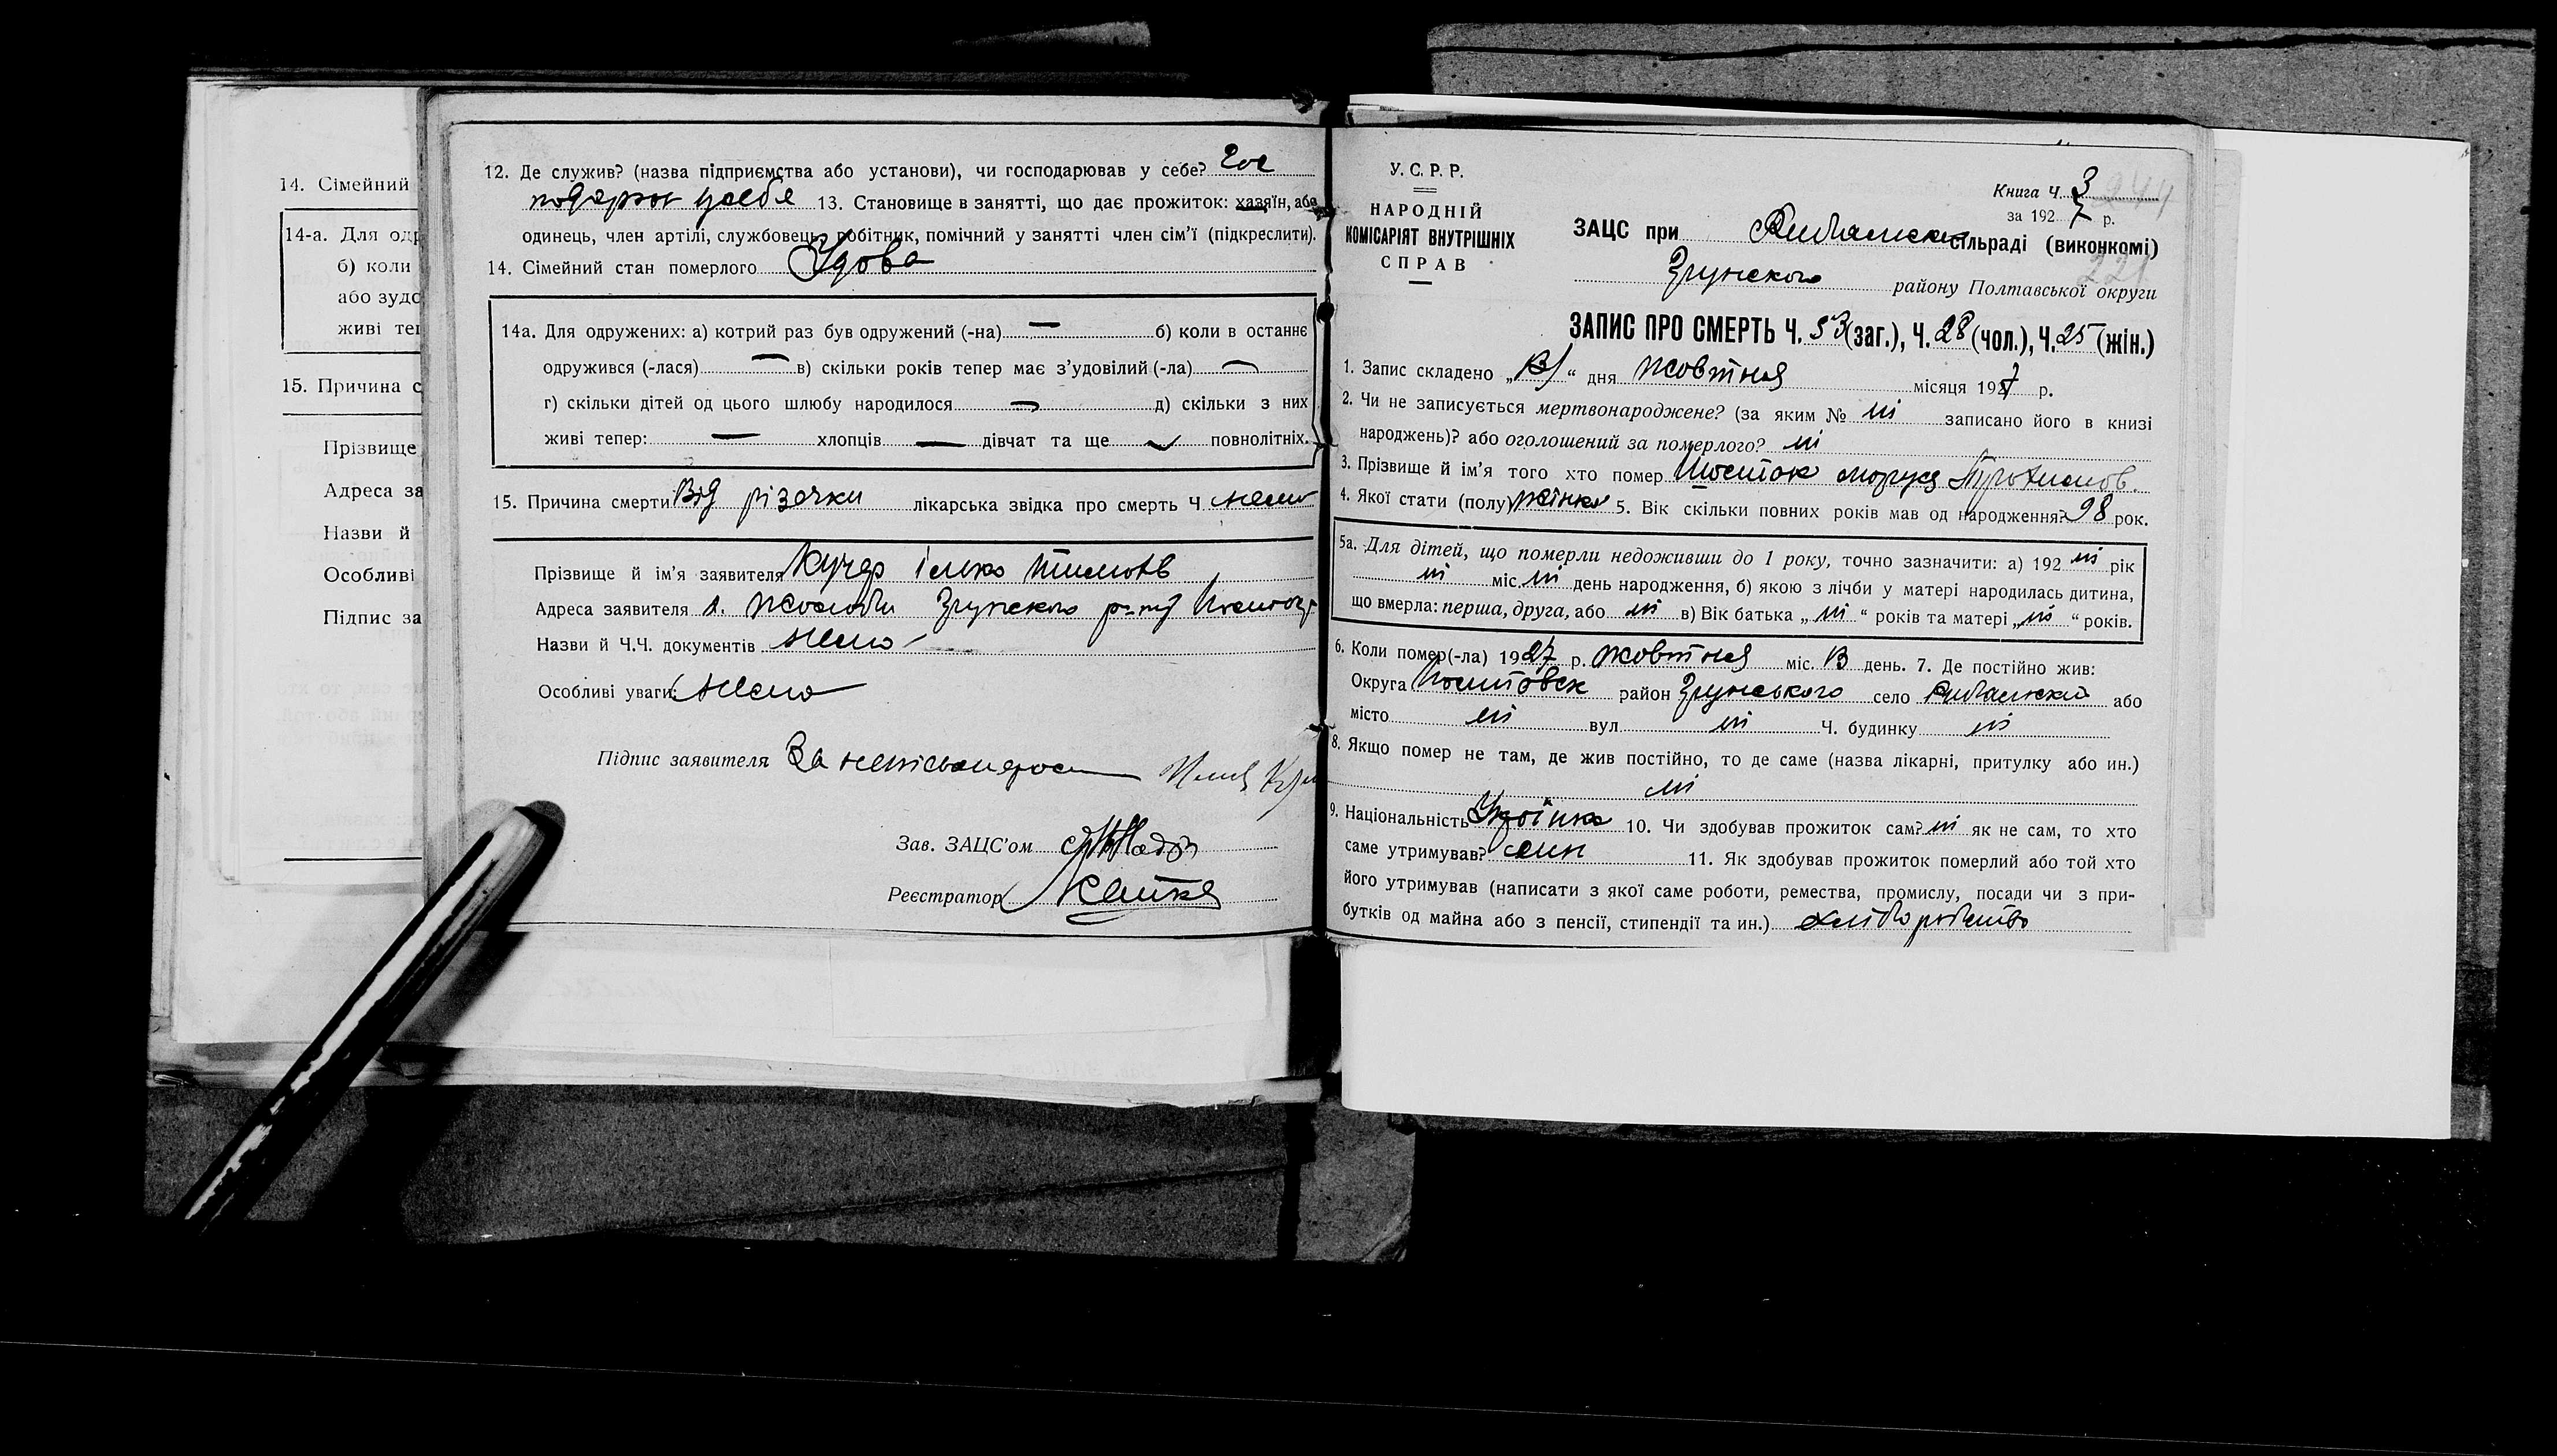 14. Сімейний
14-а. Для одр
б) коли
або зудо
живі теп
15. Причина с
Прізвище
Адреса за
Назви й
Особливі
Підпис за
12. Де служив? (назва підприємства або установи), чи господарював у себе? гос
подарюв усебя 13. Становище в занятті, що дає прожиток: хазяїн, або
одинець, член артілі, службовець, робітник, помічний у занятті член сім'ї (підкреслити).
14. Сімейний стан померлого Удова
14а. Для одружених: а) котрий раз був одружений (-на) — б) коли в останнє
одружився (-лася) — в) скільки років тепер має з'удовілий (-ла) —
г) скільки дітей од цього шлюбу народилося — д) скільки з них
живі тепер: — хлопців — дівчат та ще повнолітніх.
15. Причина смерти Від різачки лікарська звідка про смерть Ч
Прізвище й ім'я заявителя Кучер
Адреса заявителя Зіньского
Назви й Ч.Ч. документів
Особливі уваги:
Підпис заявителя За
Зав. ЗАЦС'ом
Реєстратор
У. С. Р. Р.
НАРОДНІЙ
КОМІСАРІЯТ ВНУТРІШНІХ
СПРАВ
Книга Ч. 3 244
за 1927 р.
ЗАЦС при сільраді (виконкомі)
221
району Полтавської округи
ЗАПИС ПРО СМЕРТЬ Ч. 53 (заг.), Ч. 28 (чол.), Ч. 25 (жін.)
1. Запис складено „ “ дня жовтня місяця 1927 р.
2. Чи не записується мертвонароджене? (за яким № ні записано його в книзі
народжень)? або оголошений за померлого? ні
3. Прізвище й ім'я того хто помер
4. Якої стати (полу) жінка 5. Вік скільки повних років мав од народження? 98 рок.
5а. Для дітей, що померли недоживши до 1 року, точно зазначити: а) 192 ні рік
ні міс. ні день народження, б) якою з лічби у матері народилась дитина,
що вмерла: перша, друга, або ні в) Вік батька „ ні “ років та матері „ ні “ років.
6. Коли помер(-ла) 1927 р. жовтня міс. день. 7. Де постійно жив:
Округа район село або
місто ні вул ні Ч. будинку ні
8. Якщо помер не там, де жив постійно, то де саме (назва лікарні, притулку або ин.)
ні
9. Національність 10. Чи здобував прожиток сам? ні як не сам, то хто
саме утримував? син 11. Як здобував прожиток померлий або той хто
його утримував (написати з якої саме роботи, ремества, промислу, посади чи з при-
бутків од майна або з пенсії, стипендії та ин.) хліборобство